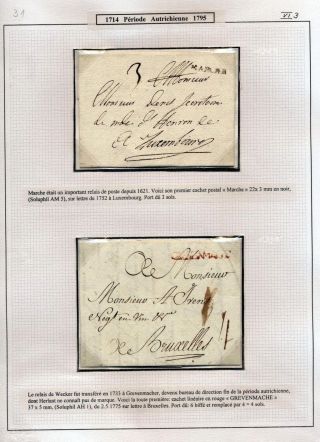 31
1714 Période Autrichienne 1795
VI.3
3
Monsieur
Monsieur
de
A Luxembourg
Marche était un important relais de poste depuis 1621. Voici son premier cachet postal « Marche » 22x 3 mm en noir,
(Soluphil AM 5), sur lettre de 1752 à Luxembourg. Port dû 3 sols.
A Monsieur
Monsieur
Negt en Vin
de Bruxelles
4
Le relais de Wecker fut transféré en 1755 à Grevenmacher, devenu bureau de direction fin de la période autrichienne,
dont Herlant ne connaît pas de marque. Voici la toute première: cachet linéaire en rouge « GREVENMACHE »
37 x 5 mm, (Soluphil AH 1), de 2.5 1775 sur lettre à Bruxelles. Port dû: 6 biffé et remplacé par 4 = 4 sols.